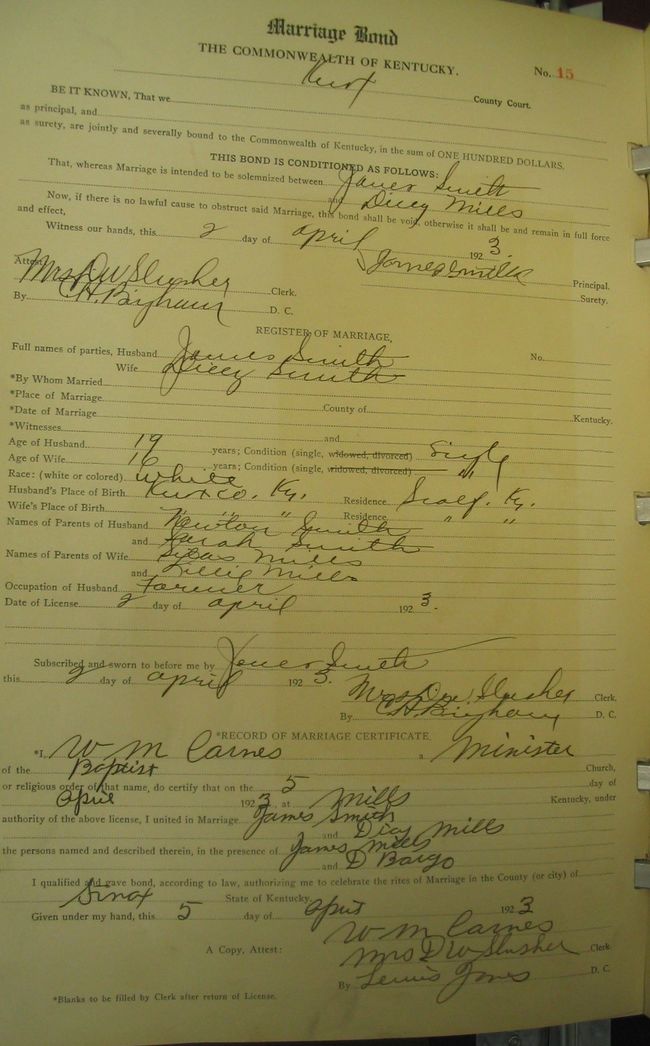 Marriage Bond
THE COMMONWEALTH OF KENTUCKY.
No. 15
Knox County Court.
BE IT KNOWN, That we
as principal, and
as surety, are jointly and severally bound to the Commonwealth of Kentucky, in the sum of ONE HUNDRED DOLLARS.
THIS BOND IS CONDITIONED AS FOLLOWS:
That, whereas Marriage is intended to be solemnized between James Smith
and Dicey Mills
Now, if there is no lawful cause to obstruct said Marriage, this bond shall be void, otherwise it shall be and remain in full force
and effect,
Witness our hands, this 2 day of april 1923.
James Smith Principal.
Attest:
Mrs D W Slusher Clerk.
Surety.
By C H. Bingham D. C.
REGISTER OF MARRIAGE,
Full names of parties, Husband James Smith No.
Wife Dicey Smith
*By Whom Married
*Place of Marriage County of Kentucky.
*Date of Marriage
*Witnesses and
Age of Husband 19 years; Condition (single, widowed, divorced) Single
Age of Wife 16 years; Condition (single, widowed, divorced) "
Race: (white or colored) White
Husband's Place of Birth Knox co. Ky. Residence Scalf. Ky.
Wife's Place of Birth " " " Residence " "
Names of Parents of Husband Newton Smith
and Sarah Smith
Names of Parents of Wife Silas Mills
and Lillie Mills
Occupation of Husband Farmer
Date of License 2 day of april 1923.
Subscribed and sworn to before me by James Smith
this 2 day of april 1923.
Mrs D W Slusher Clerk.
By C H Bingham D. C.
*RECORD OF MARRIAGE CERTIFICATE.
*I, W M Carnes a Minister
of the Baptist Church,
or religious order of that name, do certify that on the 5 day of
April 1923, at Mills Kentucky, under
authority of the above license, I united in Marriage James Smith
and Dicy Mills
the persons named and described therein, in the presence of James Mills
and D Bargo
I qualified and gave bond, according to law, authorizing me to celebrate the rites of Marriage in the County (or city) of
State of Kentucky
Given under my hand, this 5 day of April 1923
W M Carnes
A Copy, Attest: Mrs D W Slusher Clerk
By Lewis Jones D. C.
*Blanks to be filled by Clerk after return of License.